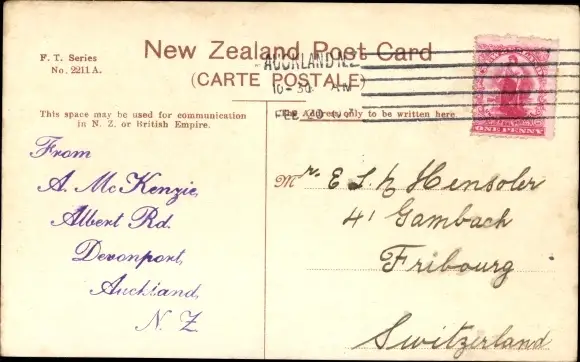 F. T. Series
No. 2211A.
New Zealand Post Card
(CARTE POSTALE)
AUCKLAND N.Z.
10-30 AM
FEB 20
ONE PENNY
This space may be used for communication
in N. Z. or British Empire.
The Address only to be written here.
From
A. McKenzie,
Albert Rd.
Devonport,
Auckland,
N. Z
Mr. E. L. Hensoler
41 Gambach
Fribourg
Switzerland